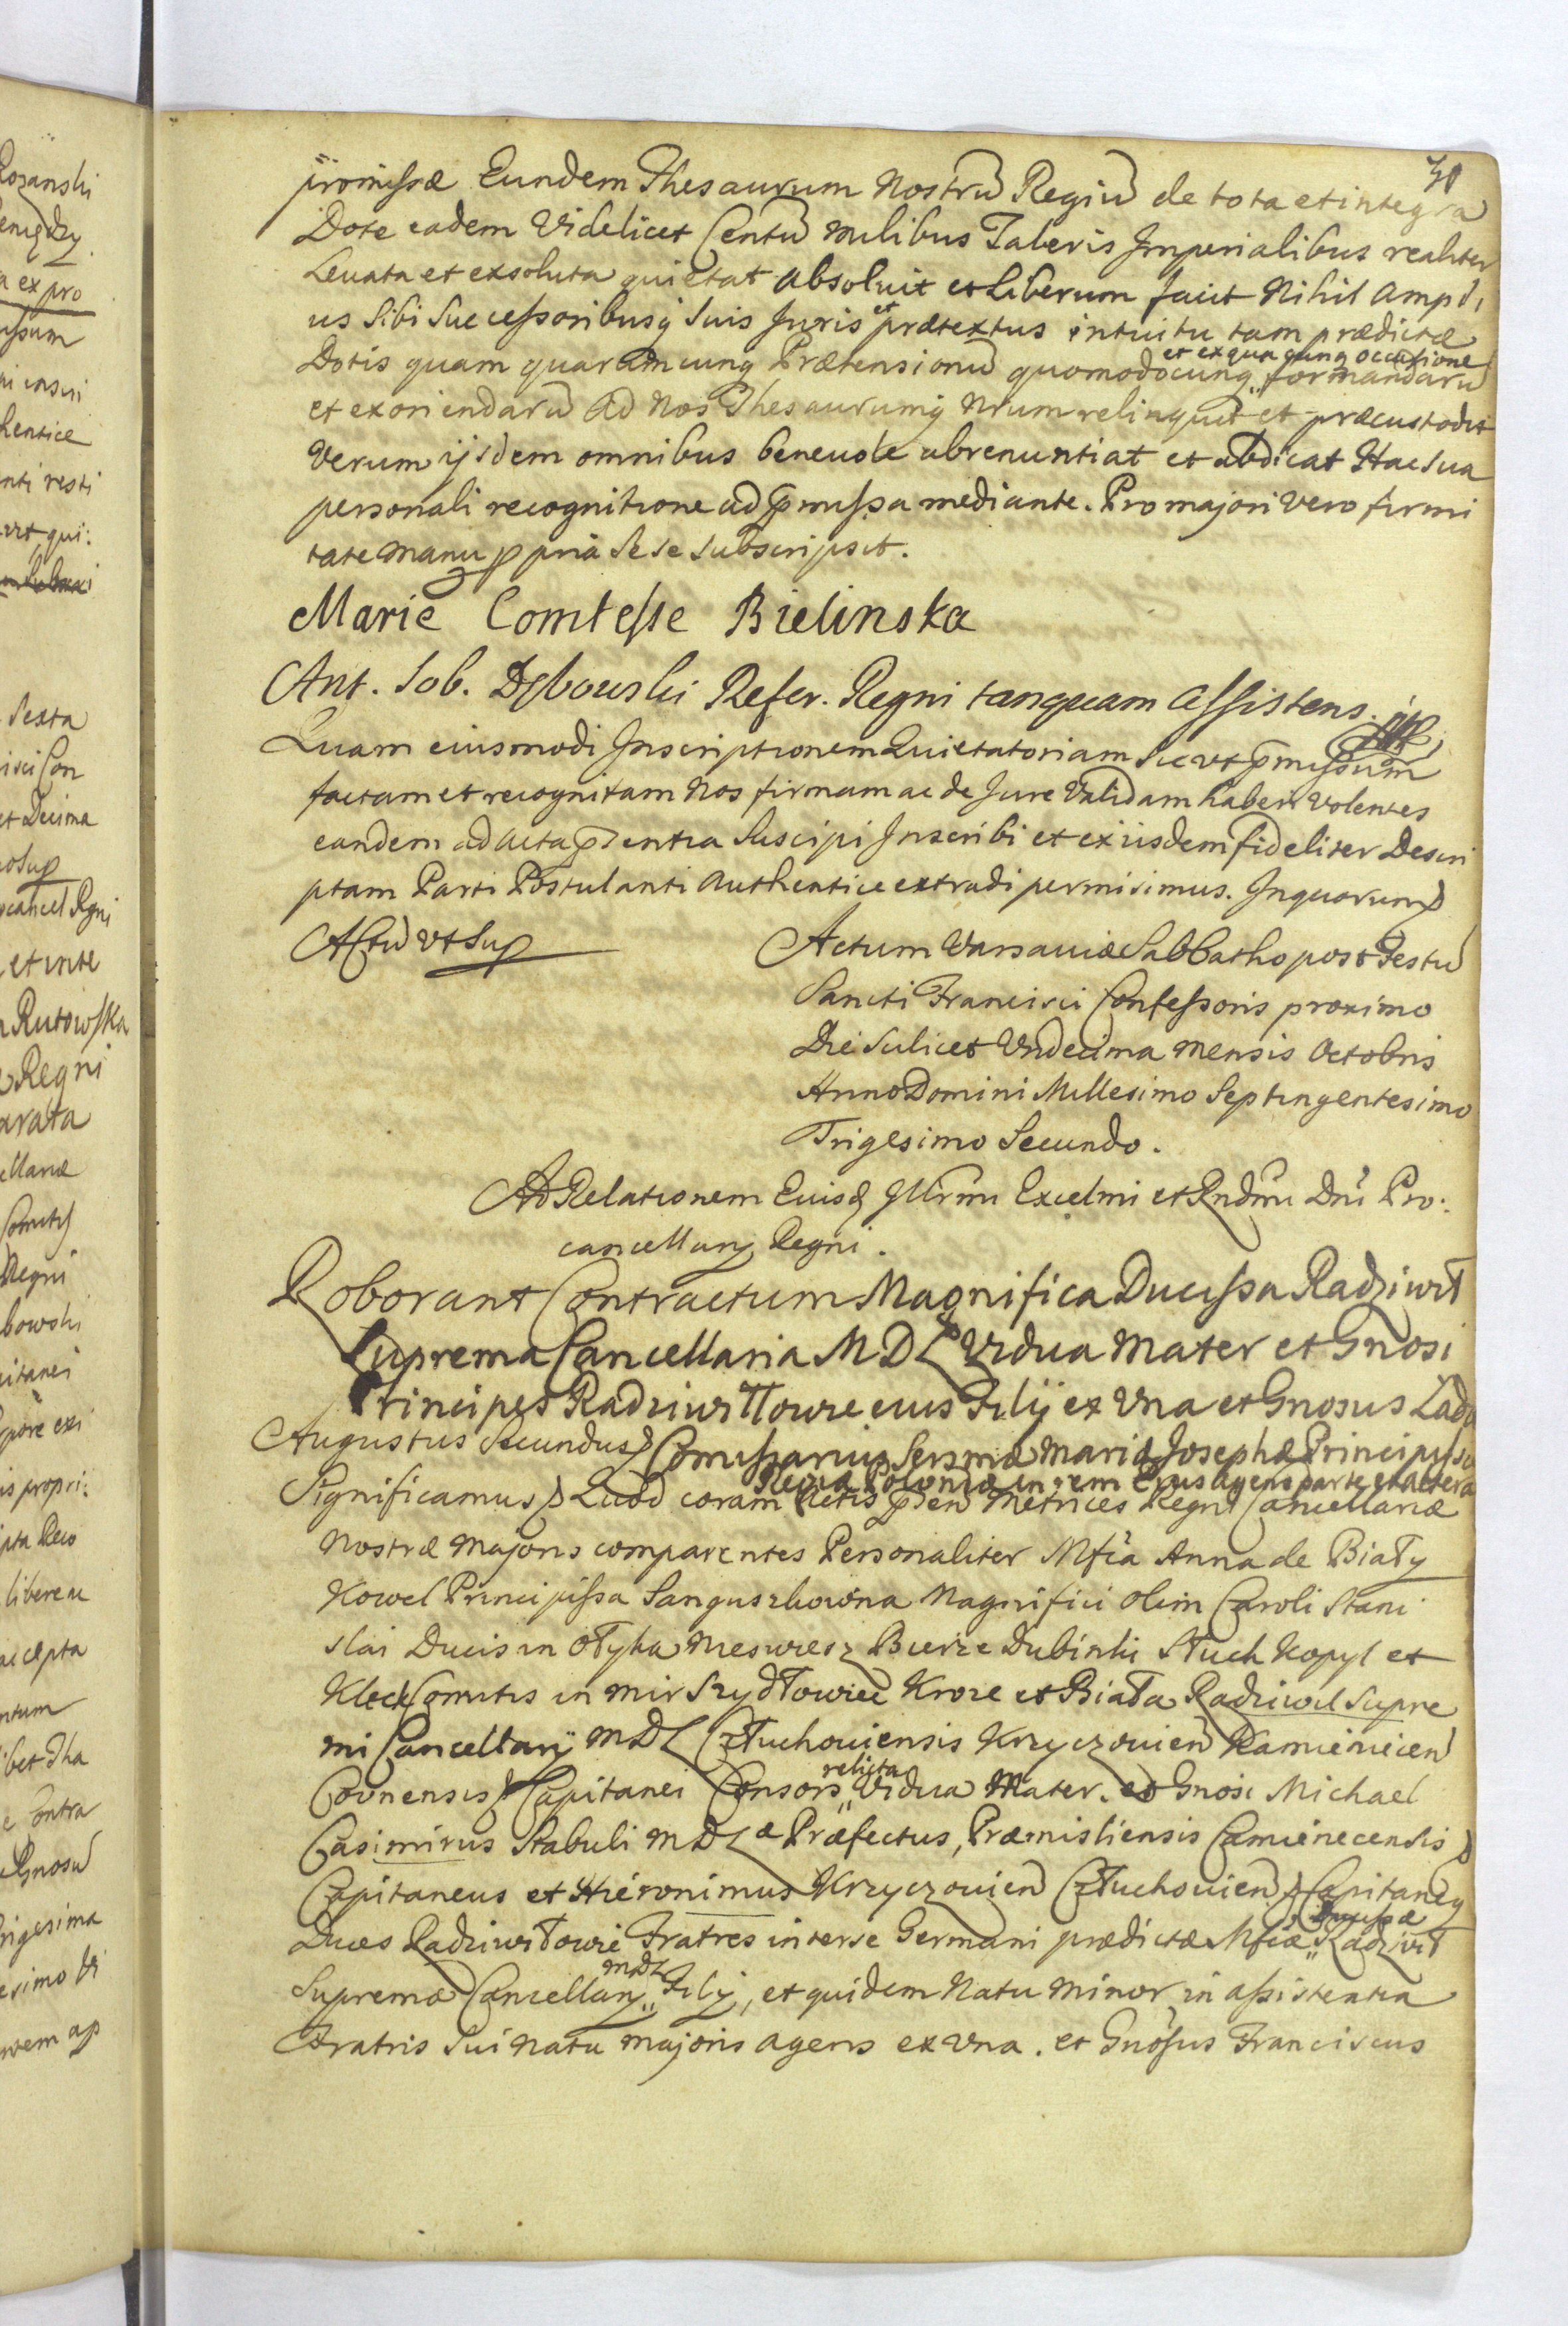 promissæ Eundem Thesaurum Nostrũ Regiũ de tota et integra
Dote eadem Videlicet Centũ Milibus Taleris Imperialibus realiter
Levata et exsoluta quietat absoluit et Liberum facit Nihil Ampli
us Sibi Successoribusq Suis Juris et prætextus intuitu tam prædictæ
Dotis quam quaramcunq Prætensionũ quomodocunq et ex qua cunq occasione formandarũ
et exoriendarũ ad Nos Thesaurumq Nrum relinquit et præcustodit
Verum ijsdem omnibus beneuole abrenuntiat et abdicat Hac sua
personali recognitione ad p̃missa mediante. Pro majori vero firmi
tate Manu ppria Sese subscripsit.
Marie Comtesse Bielinska
Ant. Seb. Dębowski Refer. Regni tanquam Assistens.
Quam eiusmodi Inscriptionem Quietatoriam Sic vt p̃missum
factam et recognitam Nos firmam ac de Jure Validam haberi Volentes
eandem ad Acta p̃sentia Suscipi Inscribi et ex iisdem fideliter Descri
ptam Parti Postulanti Authentice extradi permisimus. In quorum
Actũ vt Sup
Actum Varsaviæ Sabbatho post Festũ
Sancti Francisci Confessoris proximo
Die Scilicet Undecima Mensis Octobris
Anno Domini Millesimo Septingentesimo
Trigesimo Secundo.
Ad Relationem Eiusd Illrmi Excelmi et Rndmi Dni Pro:
cancellarij Regni.
Roborant Contractum Magnifica Ducissa Radziwił
Suprema Cancellaria M D L Vidua Mater et Gnosi
Principes Radziwiłłowie eius Filij ex Vna et Gnosus Lado
Augustus Secundus Comissarius Sersmæ Mariæ Josephæ Principissæ
Regiæ Poloniæ in rem Ejus agens parte ex altera
Significamus Quod coram Actis p̃sen Metrices Regni Cancellariæ
Nostræ Majoris comparentes Personaliter Mfca Anna de Biały
Kowel Principissa Sanguszkowna Magnifici olim Caroli Stani
slai Ducis in Ołyka Nieswiesz Bierze Dubinki Słuck Kopyl et
Kleck Comitis in Mir Szydłowiec Kroze et Biała Radziwil Supre
mi Cancellarij M D L Człuchoviensis Krzyczovien Kamienicen
Covnensis Capitanei Consors relicta Vidua Mater. et Gnosi Michael
Casimirus Stabuli M D L æ Præfectus, Præmisliensis Camienecensis
Capitaneus et Hieronimus Krzyczovien Człuchovien Capitaney
Duces Radziwiłłowie Fratres inter se Germani prædictæ Mfcæ Ducissæ Radziwił
Supremæ Cancellariy MDL Filij, et quidem Natu Minor in assistentia
Fratris Sui Natu Majoris agens ex Vna. et Gnosus Franciscus